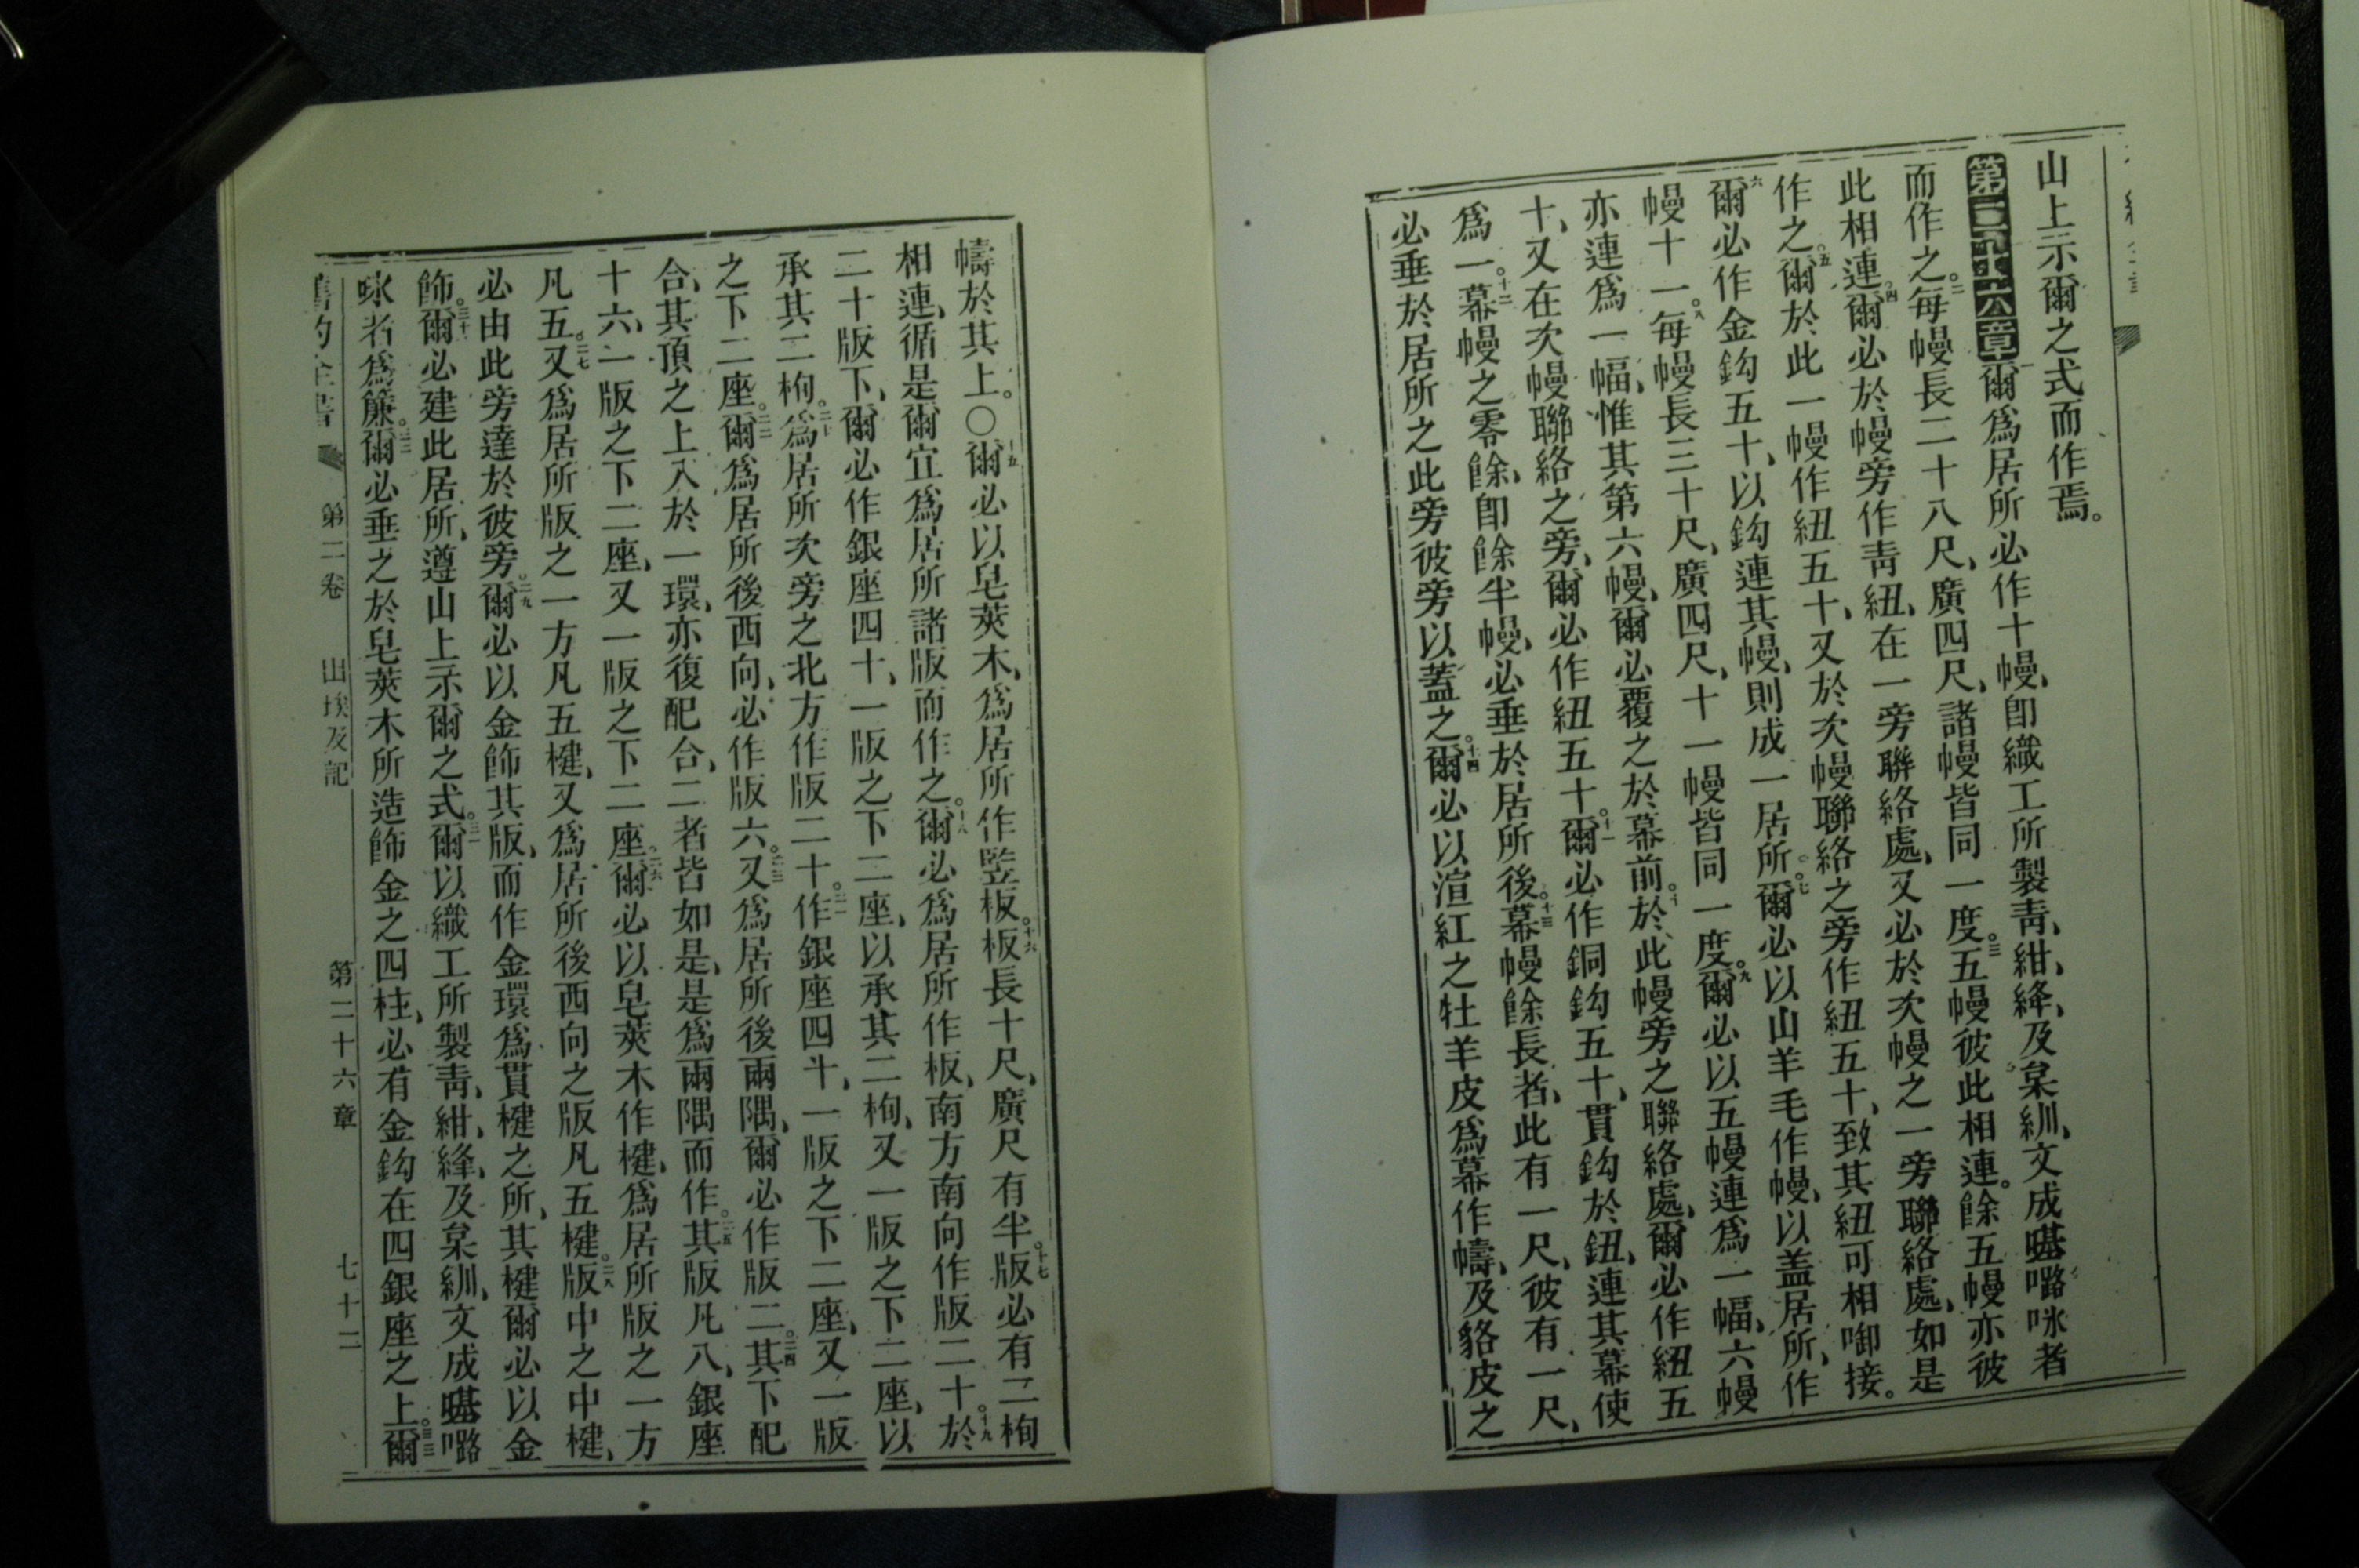 山上示爾之式而作焉。
第二十六章一爾爲居所必作十幔、卽織工所製靑、紺、絳、及枲紃、文成𠸄㗉咏者
而作之。二每幔長二十八尺、廣四尺、諸幔皆同一度。三五幔彼此相連。餘五幔亦彼
此相連。四爾必於幔旁作靑紐、在一旁聯絡處、又必於次幔之一旁聯絡處、如是
作之。五爾於此一幔作紐五十、又於次幔聯絡之旁作紐五十、致其紐可相啣接。
六爾必作金鈎五十、以鈎連其幔、則成一居所。七爾必以山羊毛作幔、以盖居所、作
幔十一。八每幔長三十尺、廣四尺、十一幔皆同一度。九爾必以五幔連爲一幅、六幔
亦連爲一幅、惟其第六幔、爾必覆之於幕前。十於此幔旁之聯絡處、爾必作紐五
十、又在次幔聯絡之旁、爾必作紐五十。十一爾必作銅鈎五十、貫鈎於鈕、連其幕使
爲一。十二幕幔之零餘、卽餘半幔、必垂於居所後。十三幕幔餘長者、此有一尺、彼有一尺、
必垂於居所之此旁彼旁以蓋之。十四爾必以渲紅之牡羊皮爲幕作幬、及貉皮之
幬於其上。〇十五爾必以皂莢木、爲居所作竪板。十六板長十尺、廣尺有半。十七版必有二枸
相連、循是爾宜爲居所諸版而作之。十八爾必爲居所作板、南方南向作版二十。十九於
二十版下、爾必作銀座四十、一版之下二座、以承其二枸、又一版之下二座、以
承其二枸。二十爲居所次旁之北方作版二十。二一作銀座四斗、一版之下二座、又一版
之下二座。二二爾爲居所後西向、必作版六。二三又爲居所後兩隅、爾必作版二。二四其下配
合、其頂之上入於一環、亦復配合、二者皆如是、是爲兩隅而作。二五其版凡八、銀座
十六、一版之下二座、又一版之下二座。二六爾必以皂莢木作楗、爲居所版之一方
凡五。二七又爲居所版之一方凡五楗、又爲居所後西向之版凡五楗。二八版中之中楗、
必由此旁達於彼旁。二九爾必以金飾其版、而作金環爲貫楗之所、其楗爾必以金
飾。三十爾必建此居所、遵山上示爾之式。三一爾以織工所製靑、紺、絳、及枲紃、文成𠸄㗉
咏者爲簾。三二爾必垂之於皂莢木所造飾金之四柱、必有金鈎在四銀座之上。三三爾
舊約全書 第二卷 出埃及記 第二十六章 七十二